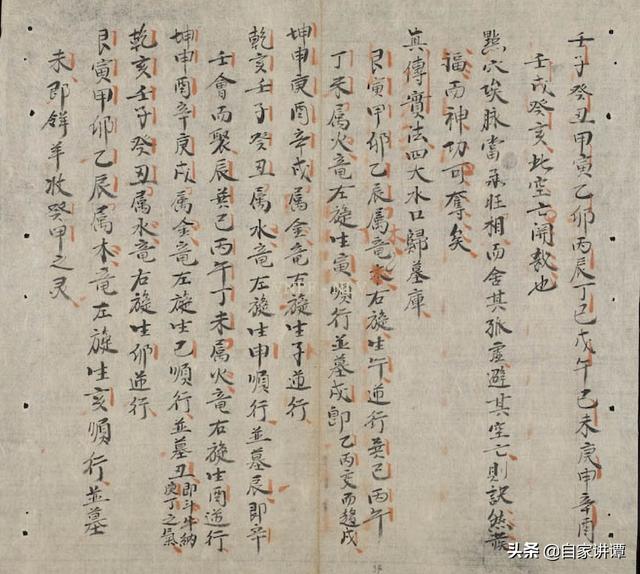 壬子癸丑甲寅乙卯丙辰丁巳戊午己未庚申辛酉
壬戌癸亥此空亡開裁也
點穴挨脉當乘旺相而舍其孤虛避其空亡則訣然發
福而神功可奪矣
真傳實法四大水口歸墓庫
艮寅甲卯乙辰属木竜右旋生午逆行巽巳丙午
丁未属火竜左旋生寅順行並墓戌即乙丙交而趨戌
坤申庚酉辛戌属金竜右旋生子逆行
乾亥壬子癸丑属水竜左旋生申順行並墓辰即辛
壬會而聚辰巽巳丙午丁未属火竜右旋生酉逆行
坤申酉辛庚戌属金竜左旋生巳順行並墓丑即斗牛納庚丁之氣
乾亥壬子癸丑属水竜右旋生卯逆行
艮寅甲卯乙辰属木竜左旋生亥順行並墓
未即羊收癸甲之灵
头条 @自家讲谭